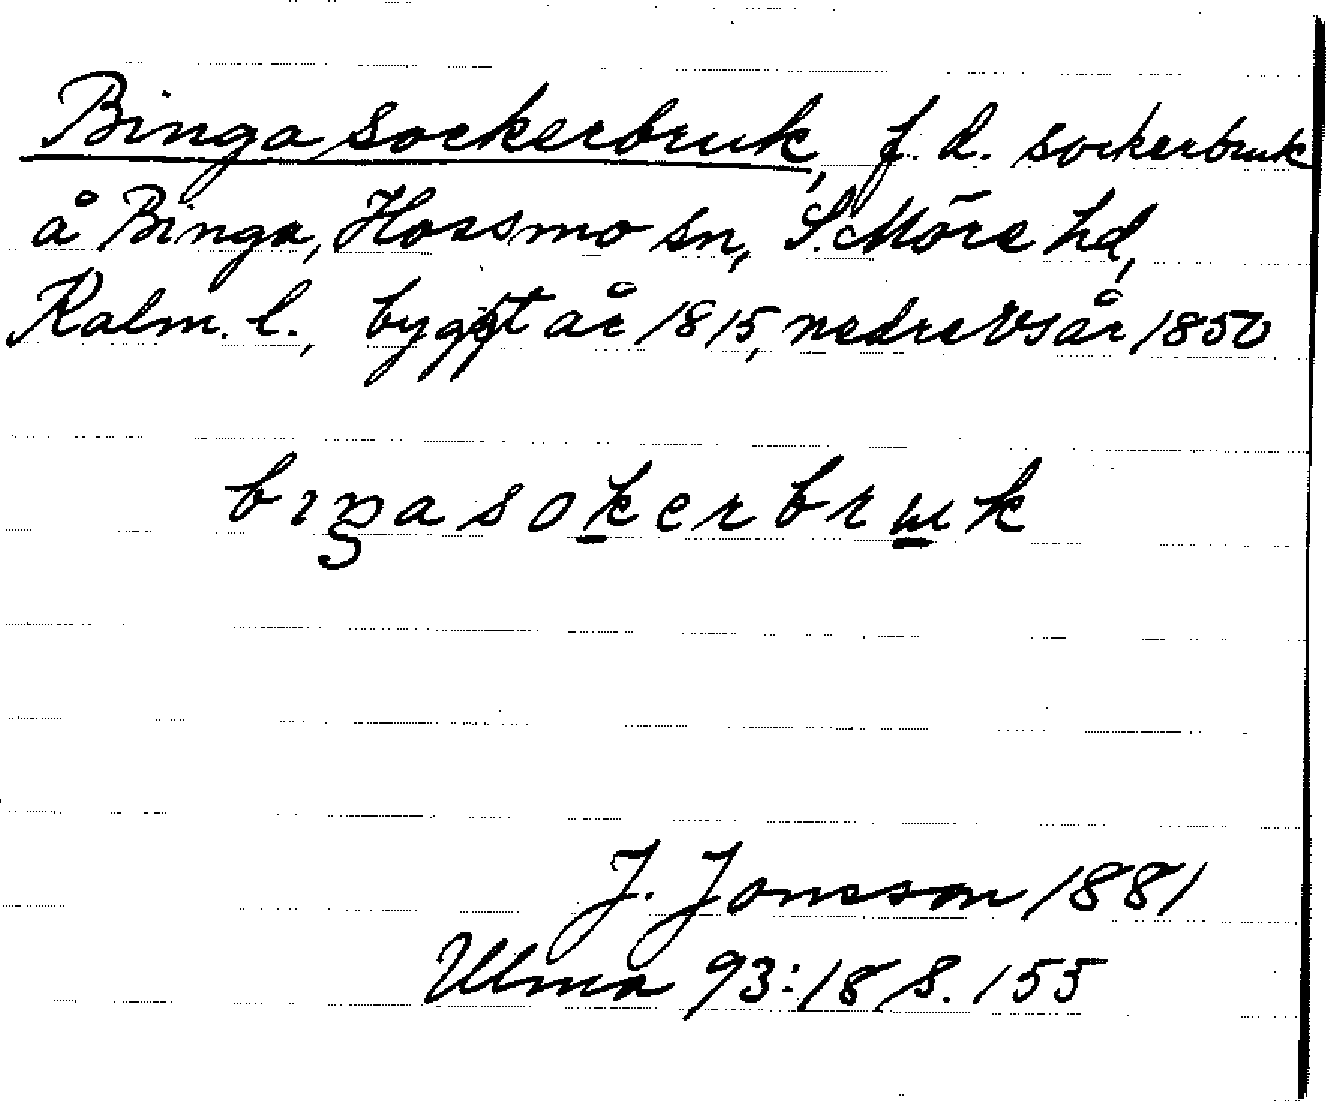 Binga sockerbruk, f. d. sockerbruk
å Binga, Hossmo sn, S. Möre hd,
Kalm. l., byggt år 1815, nedrevs år 1850
bıŋasokerbruk
J. Jonsson 1881
Ulma 93:18 S. 155